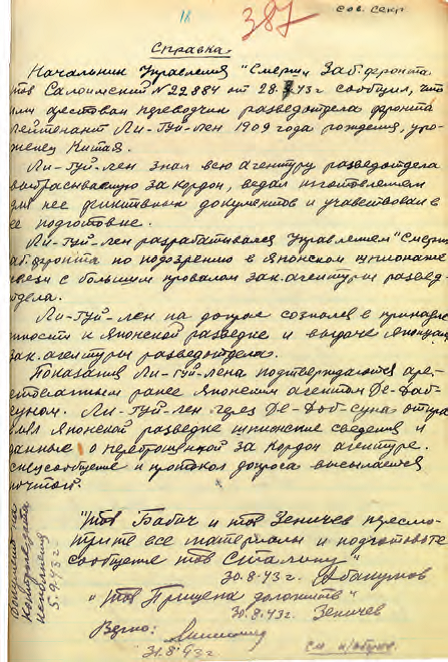 18
387
сов. секр.
Справка.
Начальник Управления "Смерш" Заб. фронта
тов Салоимский № 22884 от 28. .43г сообщил, что
ими арестован переводчик разведотдела фронта
лейтенант Ли-Гуй-лен 1909 года рождения, уро-
женец Китая.
Ли-Гуй-лен знал всю агентуру разведотдела
выбрасываемую за кордон, ведал изготовлением
для нее фиктивных документов и учавствовал в
ее подготовке.
Ли-Гуй-лен разрабатывался Управлением "Смерш"
Заб. фронта по подозрению в Японском шпионаже
связи с большим провалом зак. агентуры развед-
отдела.
Ли-Гуй-лен на допросе сознался в принадле-
жности к Японской разведке и выдаче Японцам
зак. агентуры разведотдела.
Показания Ли-Гуй-лена подтверждаются аре-
стованным ранее Японским агентом Де-Дав-
суном. Ли-Гуй-лен через отпра-
влял Японской разведке шпионские сведения и
данные о переброшенной за кордон агентуре.
Спецсообщение и протокол допроса высылается
почтой.
"Тов Бабич и тов Зеничев пересмо-
трите все материалы и подготовьте
сообщение тов Сталину"
30.8.43г. Абакумов
"Тов Прищепа доложите"
30.8.43г. Зеничев
Верно:
31.8.43г.
5.9.43г.
см. н/обороте.